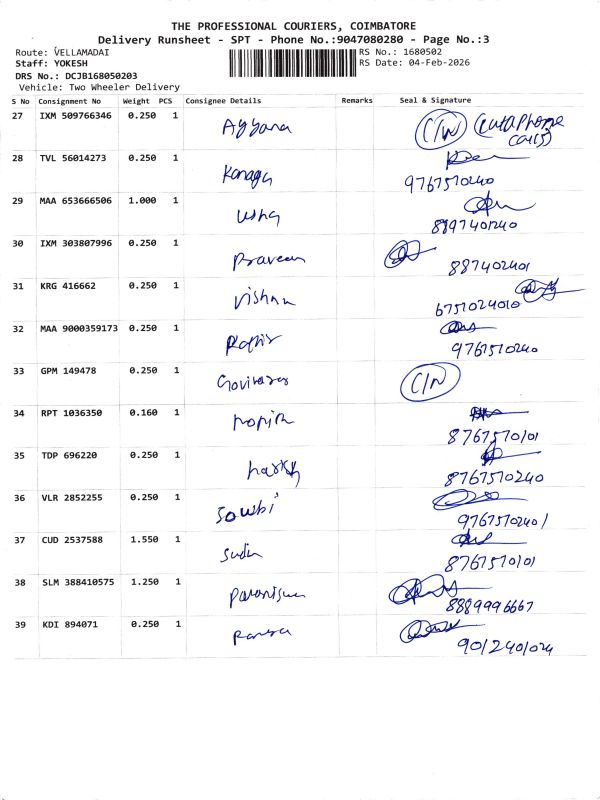 THE PROFESSIONAL COURIERS, COIMBATORE
Delivery Runsheet - SPT - Phone No.:9047080280 - Page No.:3
Route: VELLAMADAI RS No.: 1680502
Staff: YOKESH RS Date: 04-Feb-2026
DRS No.: DCJB168050203
Vehicle: Two Wheeler Delivery
S No Consignment No Weight PCS Consignee Details Remarks Seal & Signature
27 IXM 509766346 0.250 1 Ayyana C/N
28 TVL 56014273 0.250 1 Kanaga
9767570240
29 MAA 653666506 1.000 1 Usha
8897401240
30 IXM 303807996 0.250 1 Praveen
887402401
31 KRG 416662 0.250 1 Vishnu
6751024010
32 MAA 9000359173 0.250 1
9767570240
33 GPM 149478 0.250 1 C/N
34 RPT 1036350 0.160 1
8767570101
35 TDP 696220 0.250 1
8767570240
36 VLR 2852255 0.250 1
97675702401
37 CUD 2537588 1.550 1
8767570101
38 SLM 388410575 1.250 1
8889996667
39 KDI 894071 0.250 1
9012401024